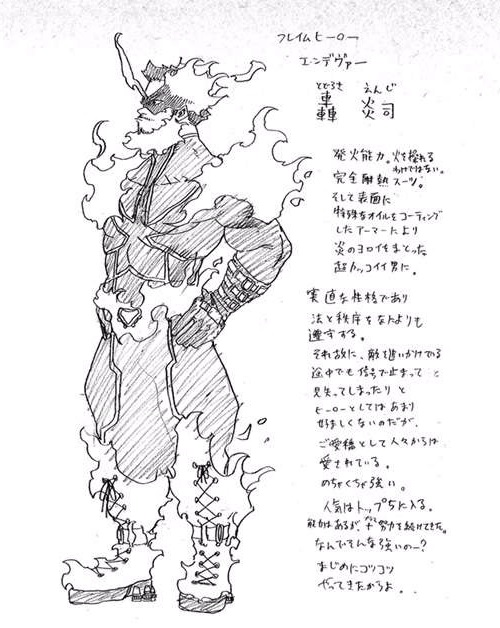 フレイムヒーロー
エンデヴァー
とどろき えんじ
轟 炎司
発火能力。火を操れる
わけではない。
完全耐熱スーツ。
そして表面に
特殊なオイルをコーティング
したアーマーにより
炎のヨロイをまとった
超カッコイイ男に。
実直な性格であり
法と秩序をなによりも
遵守する。
それ故に、敵を追いかけてる
途中でも信号で止まって
見失ってしまったりと
ヒーローとしてはあまり
好ましくないのだが、
ご愛嬌として人々からは
愛されている。
めちゃくちゃ強い。
人気はトップ5に入る。
能力はあるが、努力を続けてきた。
なんでそんな強いのー?
まじめにコツコツ
やってきたからよ。